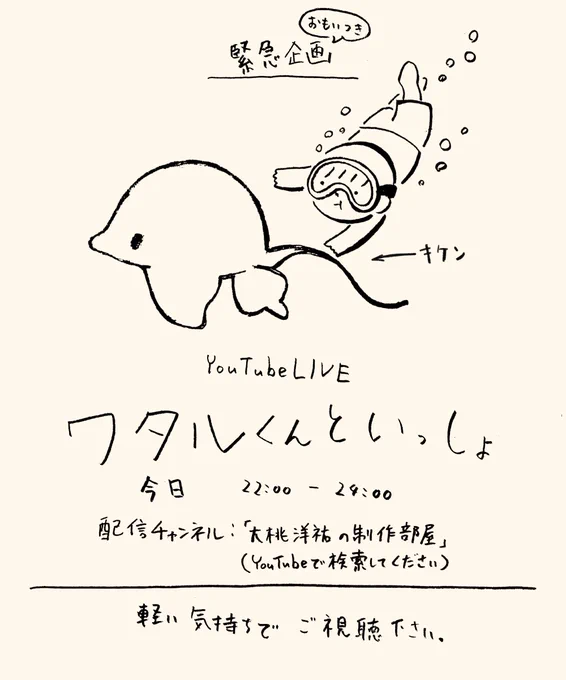 おもいつき
緊急企画
キケン
YouTube LIVE
ワタルくんといっしょ
今日 22:00 - 24:00
配信チャンネル：「大桃洋祐の制作部屋」
（YouTubeで検索してください）
軽い気持ちで ご視聴下さい。